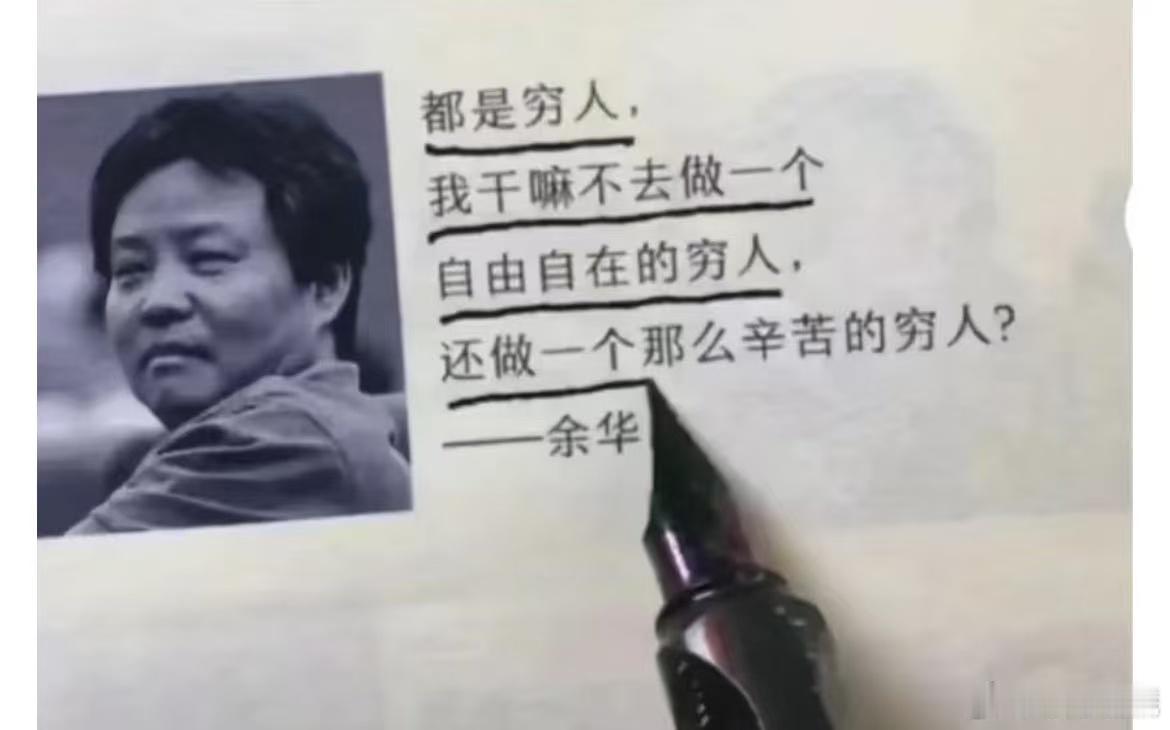 都是穷人，
我干嘛不去做一个
自由自在的穷人，
还做一个那么辛苦的穷人？
——余华